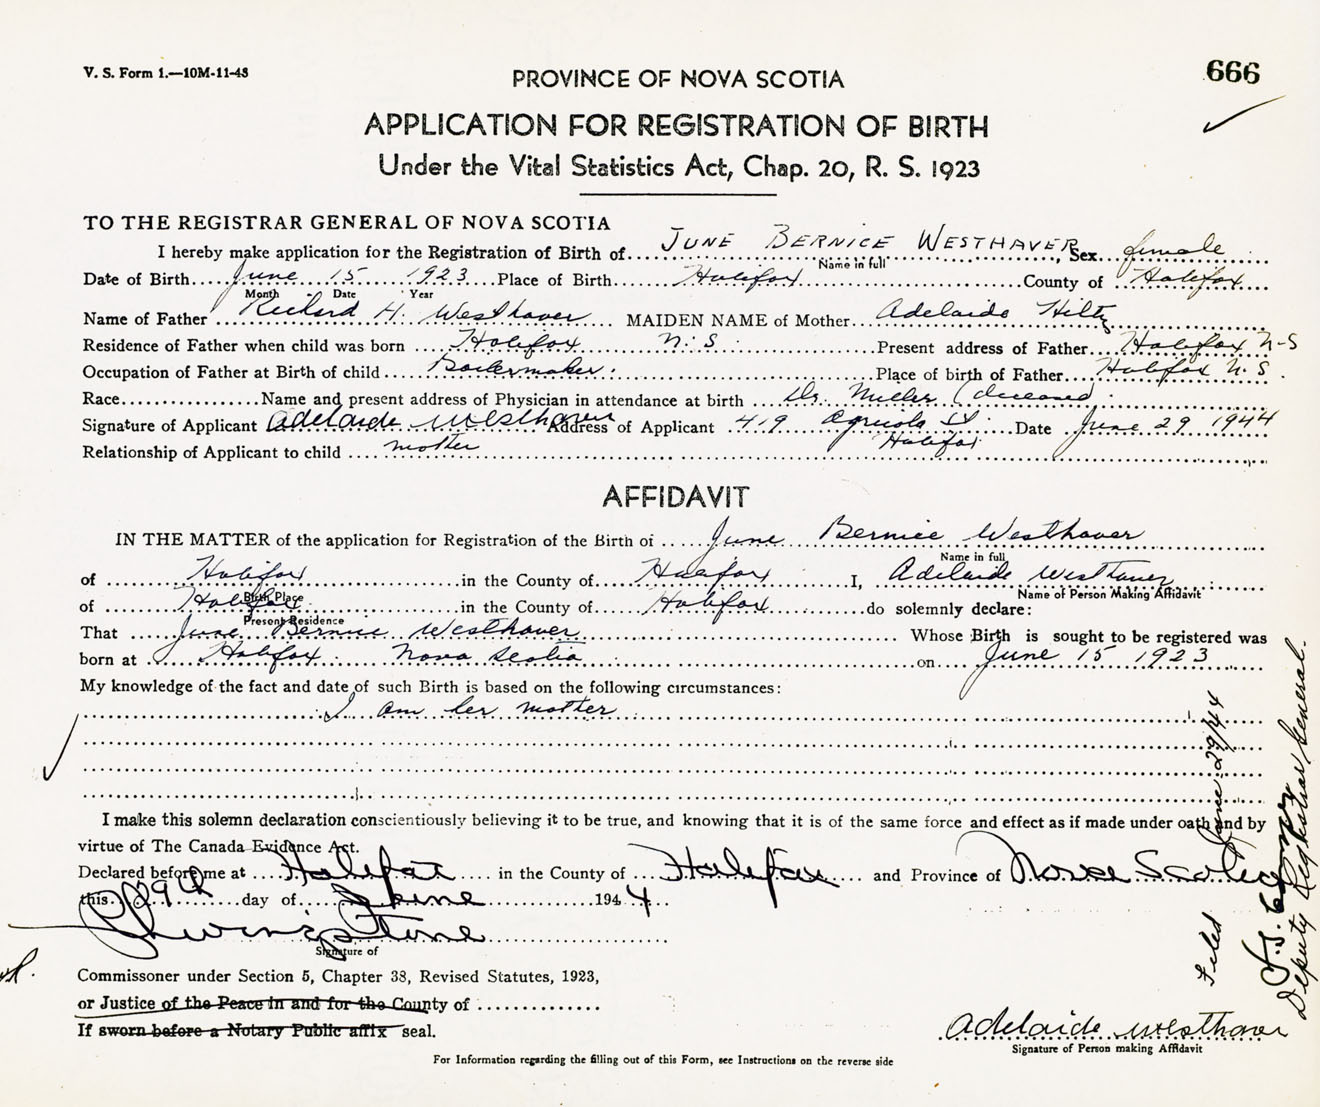 V. S. Form 1.—10M-11-43
666
PROVINCE OF NOVA SCOTIA
APPLICATION FOR REGISTRATION OF BIRTH
Under the Vital Statistics Act, Chap. 20, R. S. 1923
TO THE REGISTRAR GENERAL OF NOVA SCOTIA
I hereby make application for the Registration of Birth of JUNE BERNICE WESTHAVER, Sex female
Name in full
Date of Birth June 15 1923 Place of Birth Halifax County of Halifax
Month Date Year
Name of Father Richard H. Westhaver MAIDEN NAME of Mother Adelaide Hiltz
Residence of Father when child was born Halifax N.S. Present address of Father Halifax N-S
Occupation of Father at Birth of child Boilermaker Place of birth of Father Halifax N.S.
Race Name and present address of Physician in attendance at birth Dr. Miller (deceased)
Signature of Applicant Adelaide Westhaver Address of Applicant 419 Agricola St Date June 29 1944
Halifax
Relationship of Applicant to child mother
AFFIDAVIT
IN THE MATTER of the application for Registration of the Birth of June Bernice Westhaver
Name in full
of Halifax in the County of Halifax I, Adelaide Westhaver
Birth Place Name of Person Making Affidavit
of Halifax in the County of Halifax do solemnly declare:
Present Residence
That June Bernice Westhaver Whose Birth is sought to be registered was
born at Halifax Nova Scotia on June 15 1923
My knowledge of the fact and date of such Birth is based on the following circumstances:
I am her mother
I make this solemn declaration conscientiously believing it to be true, and knowing that it is of the same force and effect as if made under oath and by
virtue of The Canada Evidence Act.
Declared before me at Halifax in the County of Halifax and Province of Nova Scotia
this 29th day of June 1944
Signature of
Commissoner under Section 5, Chapter 38, Revised Statutes, 1923,
or Justice of the Peace in and for the County of
If sworn before a Notary Public affix seal.
Adelaide Westhaver
Signature of Person making Affidavit
For Information regarding the filling out of this Form, see Instructions on the reverse side
Filed June 29/44
Deputy Registrar General.